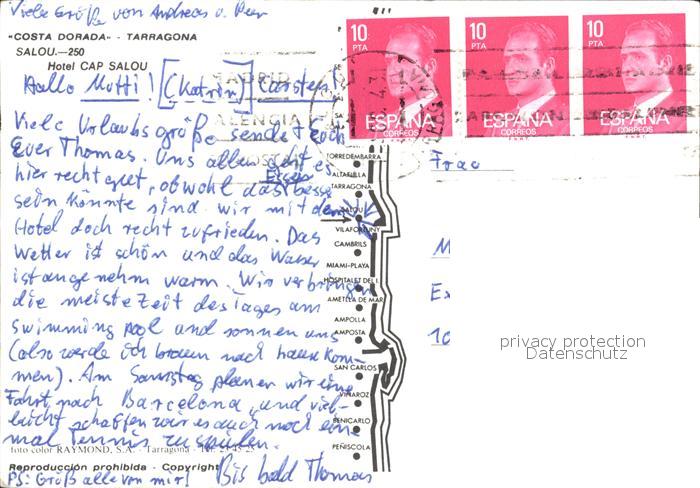 Viele Grüße von Andreas u. Peer
"COSTA DORADA" - TARRAGONA
SALOU.—250
Hotel CAP SALOU
Hallo Mutti! [(Katrin)] Carsten!
Viele Urlaubsgrüße sendet Euch
Euer Thomas. Uns allen geht es
hier recht gut, obwohl das Essen besser
sein könnte sind wir mit dem
Hotel doch recht zufrieden. Das
Wetter ist schön und das Wasser
ist angenehm warm. Wir verbringen
die meiste Zeit des Tages am
Swimming pool und sonnen uns
(also werde ich braun nach Hause kom-
men). Am Samstag planen wir eine
Fahrt nach Barcelona, und viel-
leicht schaffen wir es auch noch ein-
mal Tennis zu spielen.
foto color RAYMOND, S.A. - Tarragona -
Reproducción prohibida - Copyright
Bis bald Thomas
PS: Grüß alle von mir!
10 PTA
ESPAÑA
CORREOS
F.N.M.T.
10 PTA
ESPAÑA
CORREOS
F.N.M.T.
10 PTA
ESPAÑA
CORREOS
F.N.M.T.
MADRID
VALENCIA
TORREDEMBARRA
ALTAFULLA
TARRAGONA
SALOU
VILAFORTUNY
CAMBRILS
MIAMI-PLAYA
HOSPITALET DEL I.
AMETLLA DE MAR
AMPOLLA
AMPOSTA
SAN CARLOS
VINAROZ
BENICARLO
PEÑISCOLA
Frau
M
Ex
10
privacy protection
Datenschutz